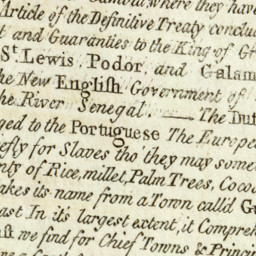 where they have
Article of the Definitive Treaty conclu
t and Guaranties to the King of Gr
St. Lewis, Podor, and Galam
he New English Government of
he River Senegal. — The Dut
ged to the Portuguese The Europe
efly for Slaves tho' they may some
nty of Rice, millet, Palm Trees, Coco
akes its name from a Town call'd G
ast In its largest extent, it Compreh
ast we find for Chief Towns & Princi